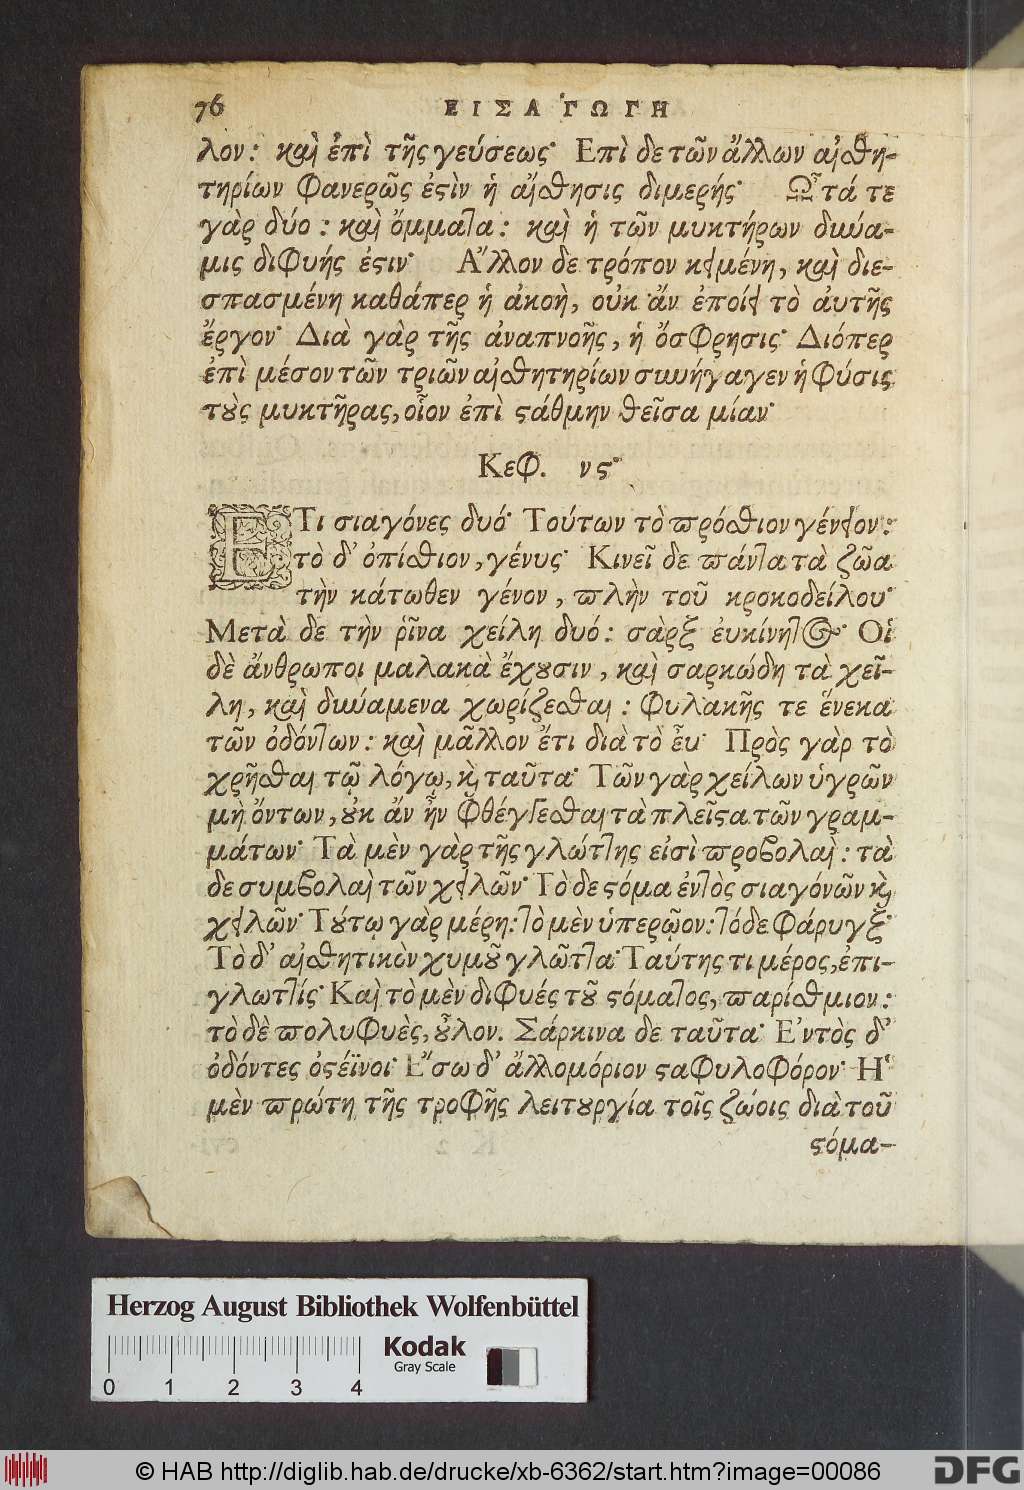 76 ΕΙΣΑΓΩΓΗ
λον: καὶ ἐπὶ τῆς γεύσεως· Επὶ δε τῶν ἄλλων αἰσθη-
τηρίων φανερῶς ἐστὶν ἡ αἴσθησις διμερής· Ω῏τά τε
γὰρ δύο: καὶ ὄμματα: καὶ ἡ τῶν μυκτήρων δυνά-
μις διφυής ἐστιν· Α῎λλον δε τρόπον κειμένη, καὶ διε-
σπασμένη καθάπερ ἡ ἀκοὴ, οὐκ ἄν ἐποίει τὸ ἀυτῆς
ἔργον· Διὰ γὰρ τῆς ἀναπνοῆς, ἡ ὄσφρησις· Διόπερ
ἐπὶ μέσον τῶν τριῶν αἰσθητηρίων συνήγαγεν ἡ φύσις
τοὺς μυκτῆρας, οἷον ἐπὶ στάθμην θεῖσα μίαν·
Κεφ. νς·
ΕΤι σιαγόνες δυό· Τούτων τὸ πρόσθιον γένειον:
τὸ δ' ὀπίσθιον, γένυς· Κινεῖ δε πάντα τὰ ζῶα
τὴν κάτωθεν γένον, πλὴν τοῦ κροκοδείλου·
Μετὰ δε τὴν ῥῖνα χείλη δυό: σὰρξ ἐυκίνητος· Οἱ
δὲ ἄνθρωποι μαλακὰ ἔχουσιν, καὶ σαρκώδη τὰ χεῖ-
λη, καὶ δυνάμενα χωρίζεσθαι: φυλακῆς τε ἕνεκα
τῶν ὀδόντων: καὶ μᾶλλον ἔτι διὰ τὸ ἖υ· Πρὸς γὰρ τὸ
χρῆσθαι τῷ λόγῳ, καὶ ταῦτα· Τῶν γὰρ χείλων ὑγρῶν
μὴ ὄντων, οὐκ ἄν ἦν φθέγγεσθαι τὰ πλεῖστα τῶν γραμ-
μάτων· Τὰ μὲν γὰρ τῆς γλώττης εἰσὶ προβολαὶ: τὰ
δε συμβολαὶ τῶν χειλῶν· Τὸ δε στόμα ἐντὸς σιαγόνῶν καὶ
χειλῶν· Τούτῳ γὰρ μέρη: τὸ μὲν ὑπερῷον: τό δε φάρυγξ·
Τὸ δ' αἰσθητικὸν χυμοῦ γλῶττα· Ταύτης τι μέρος, ἐπι-
γλωττίς· Καὶ τὸ μὲν διφυές τοῦ στόματος, παρίσθμιον:
τὸ δὲ πολυφυὲς, οὖλον. Σάρκινα δε ταῦτα· Ε᾿ντὸς δ'
ὀδόντες ὀστέϊνοι· Ε῎σω δ' ἄλλο μόριον σταφυλοφόρον· Η῾
μὲν πρώτη τῆς τροφῆς λειτουργία τοῖς ζώοις διὰ τοῦ
στόμα-
Herzog August Bibliothek Wolfenbüttel
Kodak
Gray Scale
0 1 2 3 4
© HAB http://diglib.hab.de/drucke/xb-6362/start.htm?image=00086
DFG